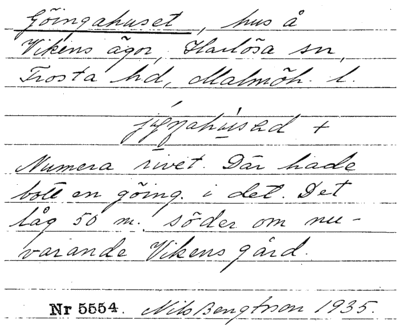 Göingahuset, hus å
Vikens ägor, Harlösa sn,
Frosta hd, Malmöh. l.
Numera rivet. Där hade
bott en göing i det. Det
låg 50 m. söder om nu-
varande Vikens gård.
Nr 5554. Nils Bengtsson 1935.